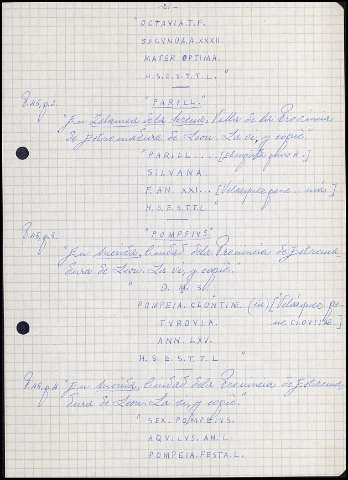 "OCTAVIA.T.F.
SECVNDA.A.XXXII
MATER OPTIMA.
H.S.E.S.T.T.L. "
"PARILL."
"En Zalamea de la Serena, Villa de la Provincia
de Extremadura de Leon. La vi, y copié"
"PARILL....
SILVANA.
F.AN.XXI...
H.S.E.S.T.T.L "
"POMPEIVS"
"En Merida, Ciudad de la Provincia de Estrema
dura de Leon. La vi, y copié.
" D. M. S.
POMPEIA. CLONTINE
TVROVLA.
ANN. LXV.
H.S.E.S.T.T.L "
"En Merida, Ciudad de la Provincia de Estrema
dura de Leon. La vi, y copié"
"SEX. POMPEIVS.
AQV.LVS.AN.L.
POMPEIA.FESTA.L.